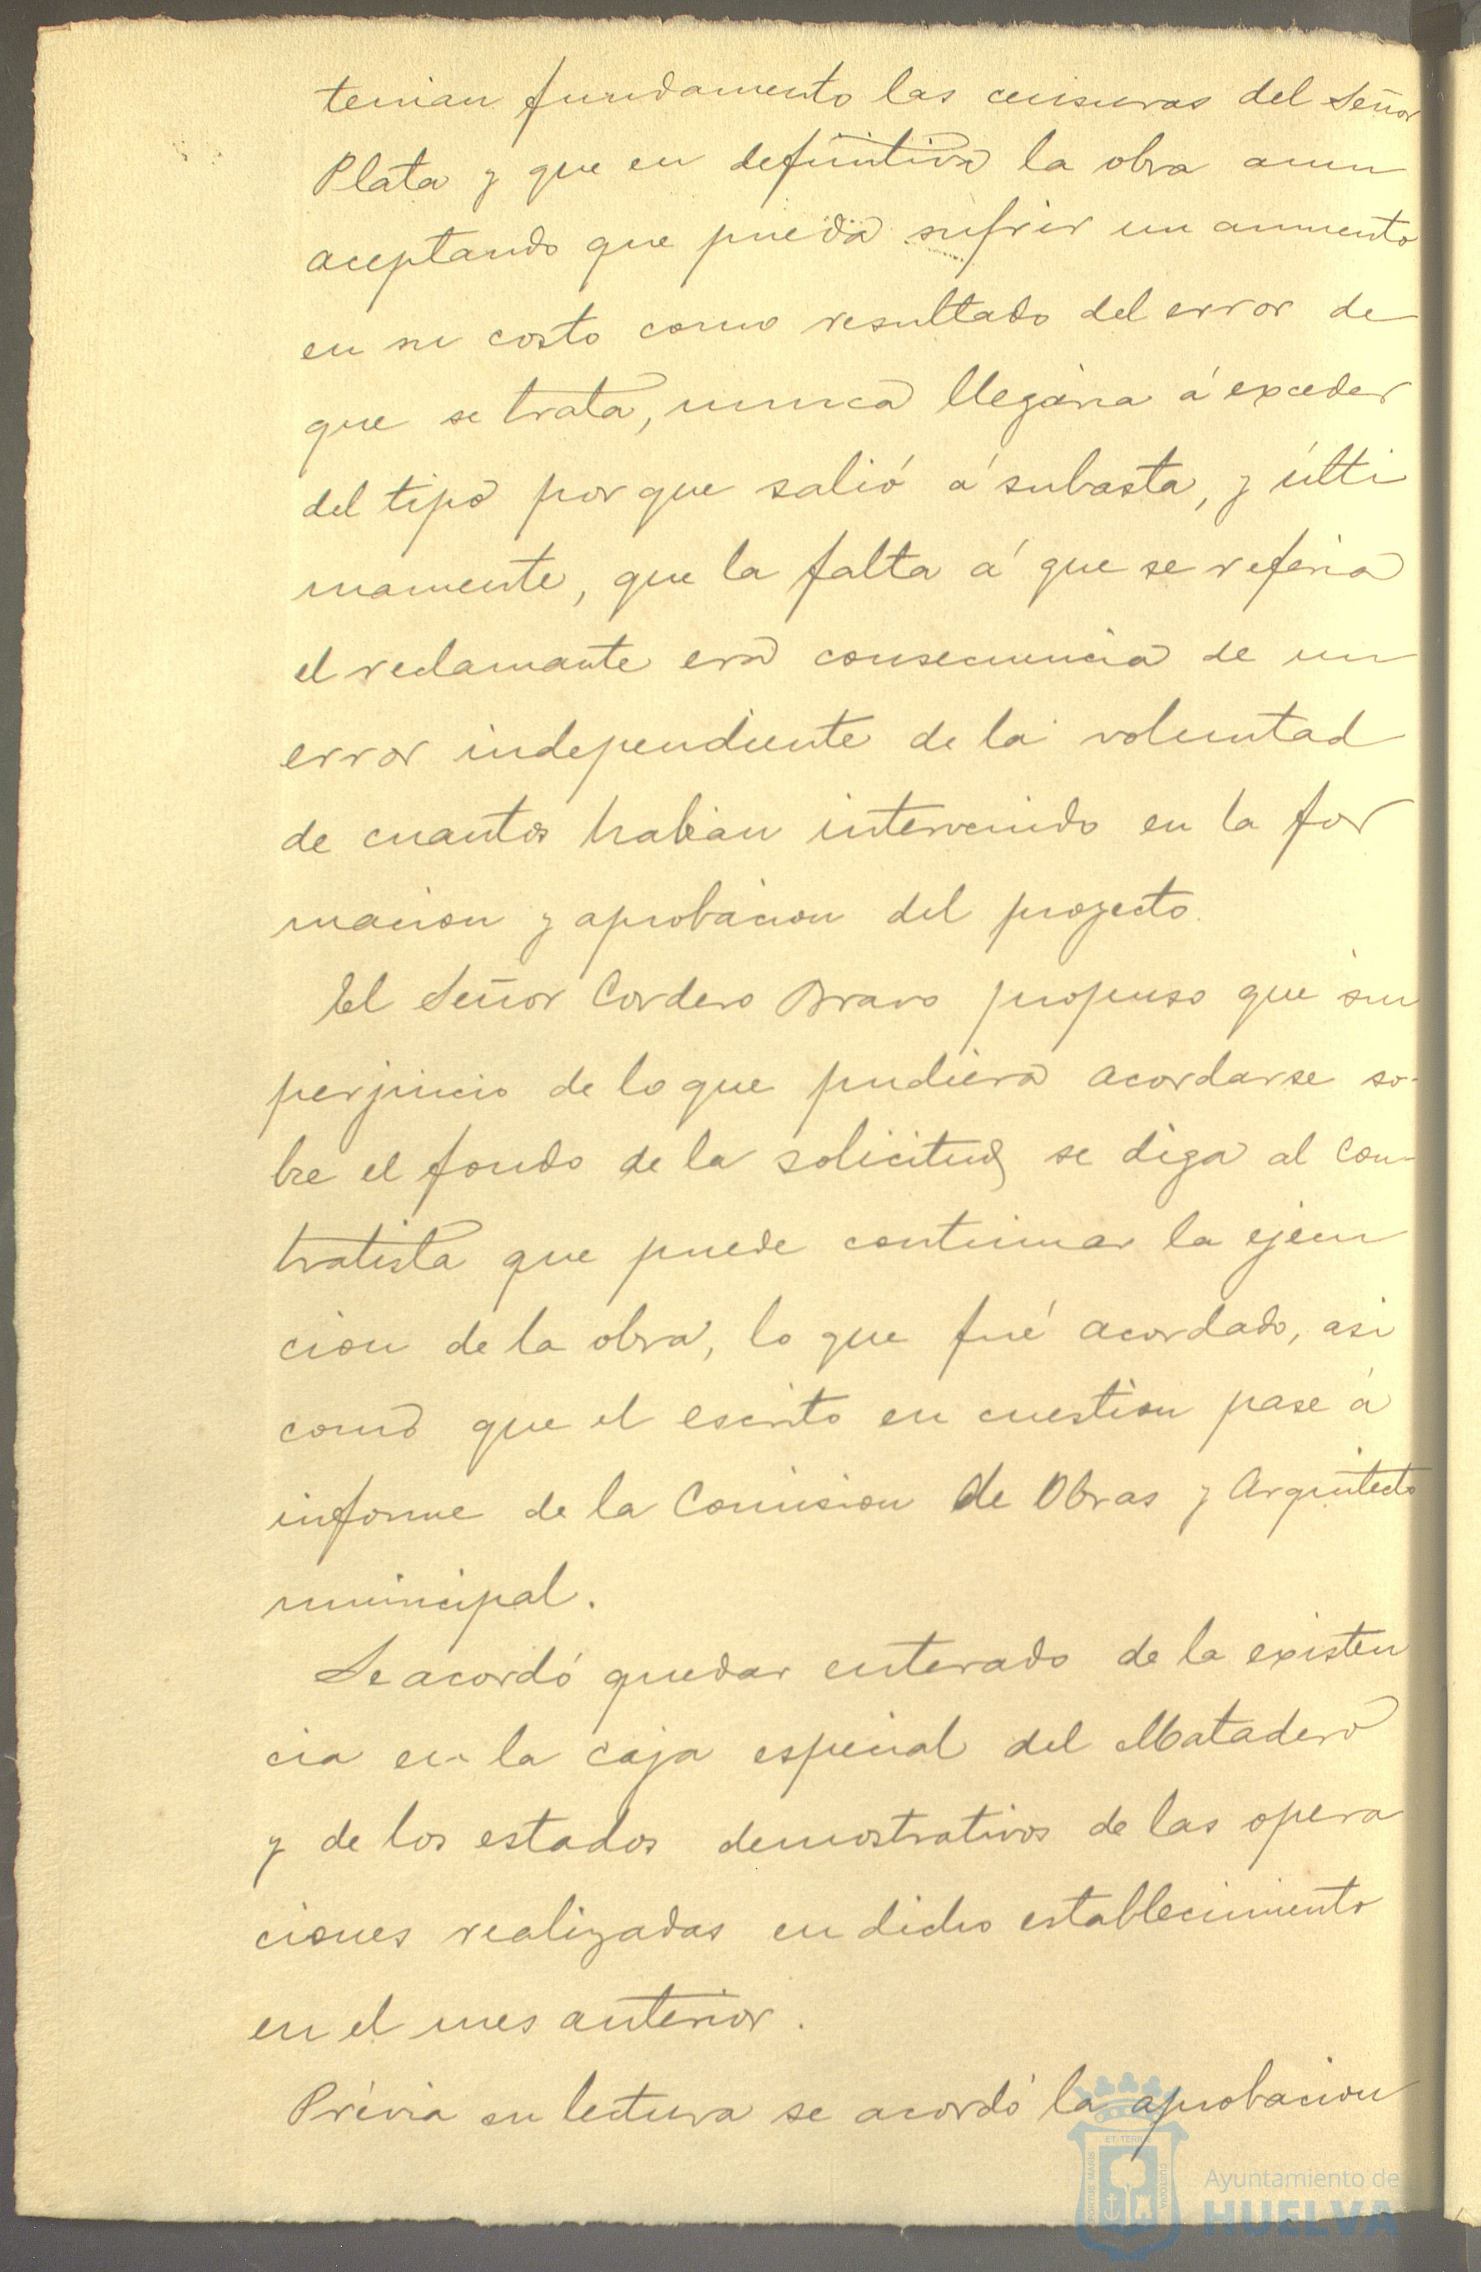 tenian fundamento las censuras del Señor
Plata y que en definitiva la obra aun
aceptando que pueda sufrir un aumento
en su costo como resultado del error de
que se trata, nunca llegaria á exceder
del tipo por que salió á subasta, y últi
mamente, que la falta á que se referia
el reclamante era consecuencia de un
error independiente de la voluntad
de cuantos habian intervenido en la for
macion y aprobacion del proyecto.
El Señor Cordero Bravo propuso que sin
perjuicio de lo que pudiera acordarse so-
bre el fondo de la solicitud se diga al con-
tratista que puede continuar la ejecu
cion de la obra, lo que fué acordado, asi
como que el escrito en cuestion pase á
informe de la Comision de Obras y Arquitecto
municipal.
Se acordó quedar enterado de la existen
cia en la caja especial del Matadero
y de los estados demostrativos de las opera
ciones realizadas en dicho establecimiento
en el mes anterior.
Prévia su lectura se acordó la aprobacion
PORTUS MARIS ET TERRE CUSTODIA
Ayuntamiento de
HUELVA